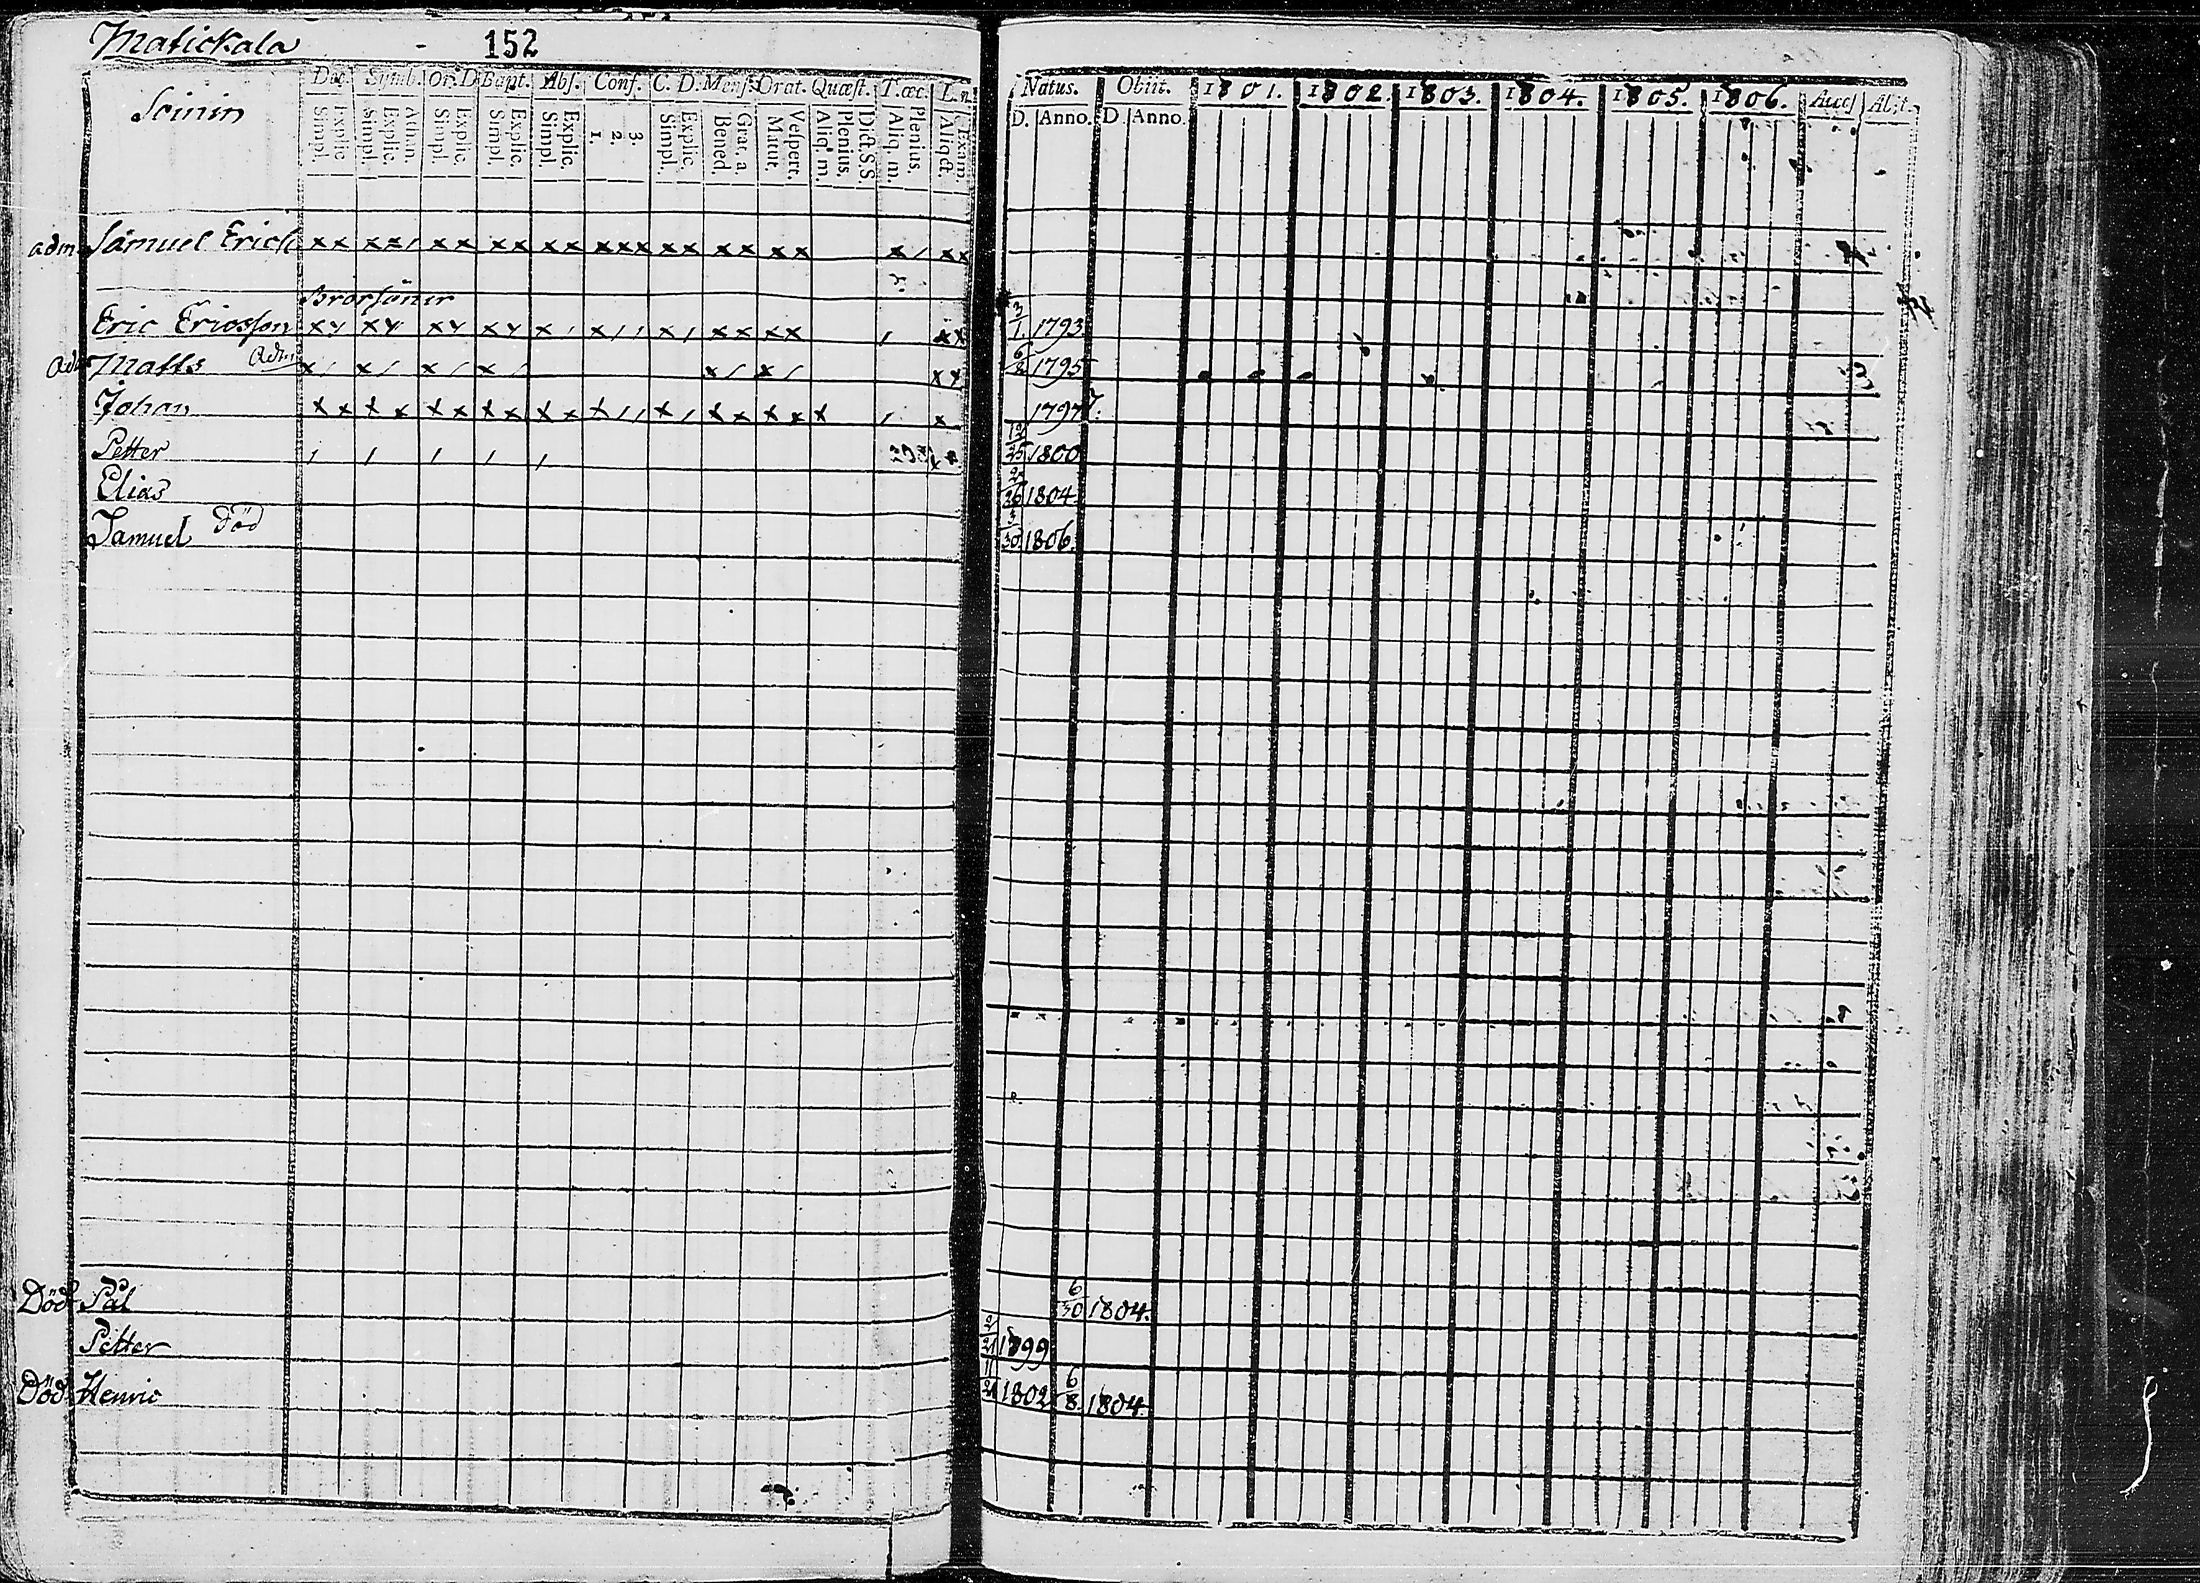 Matickala - 152
Dec. Symb. Or. D. Bapt. Abs. Conf. C. D. Mens. Orat. Quæst. T. œc. L. n.
Scinin
Simpl. Explic. Simpl. Explic. Athan. Simpl. Explic. Simpl. Explic. Simpl. Explic. 1. 2. 3. Simpl. Explic. Bened. Grat. a. Matut. Vespert. Aliq. m. Plenius. Dict. S. S. Aliq. m. Plenius. Aliqd. Exam.
Natus. Obiit. 1801. 1802. 1803. 1804. 1805. 1806. Acces Abit.
D. Anno. D. Anno.
adm Samuel Erics
Brorsöner
Eric Ericsson 3/1. 1793
Adm Matts Adm 6/8 1795
Johan 1797
Petter 12/25 1800
Elias 2/26 1804
Samuel Död 3/30 1806.
Död Pål 6/30 1804.
Petter 2/21 1799
Död Henric 11/21 1802 6/8. 1804.